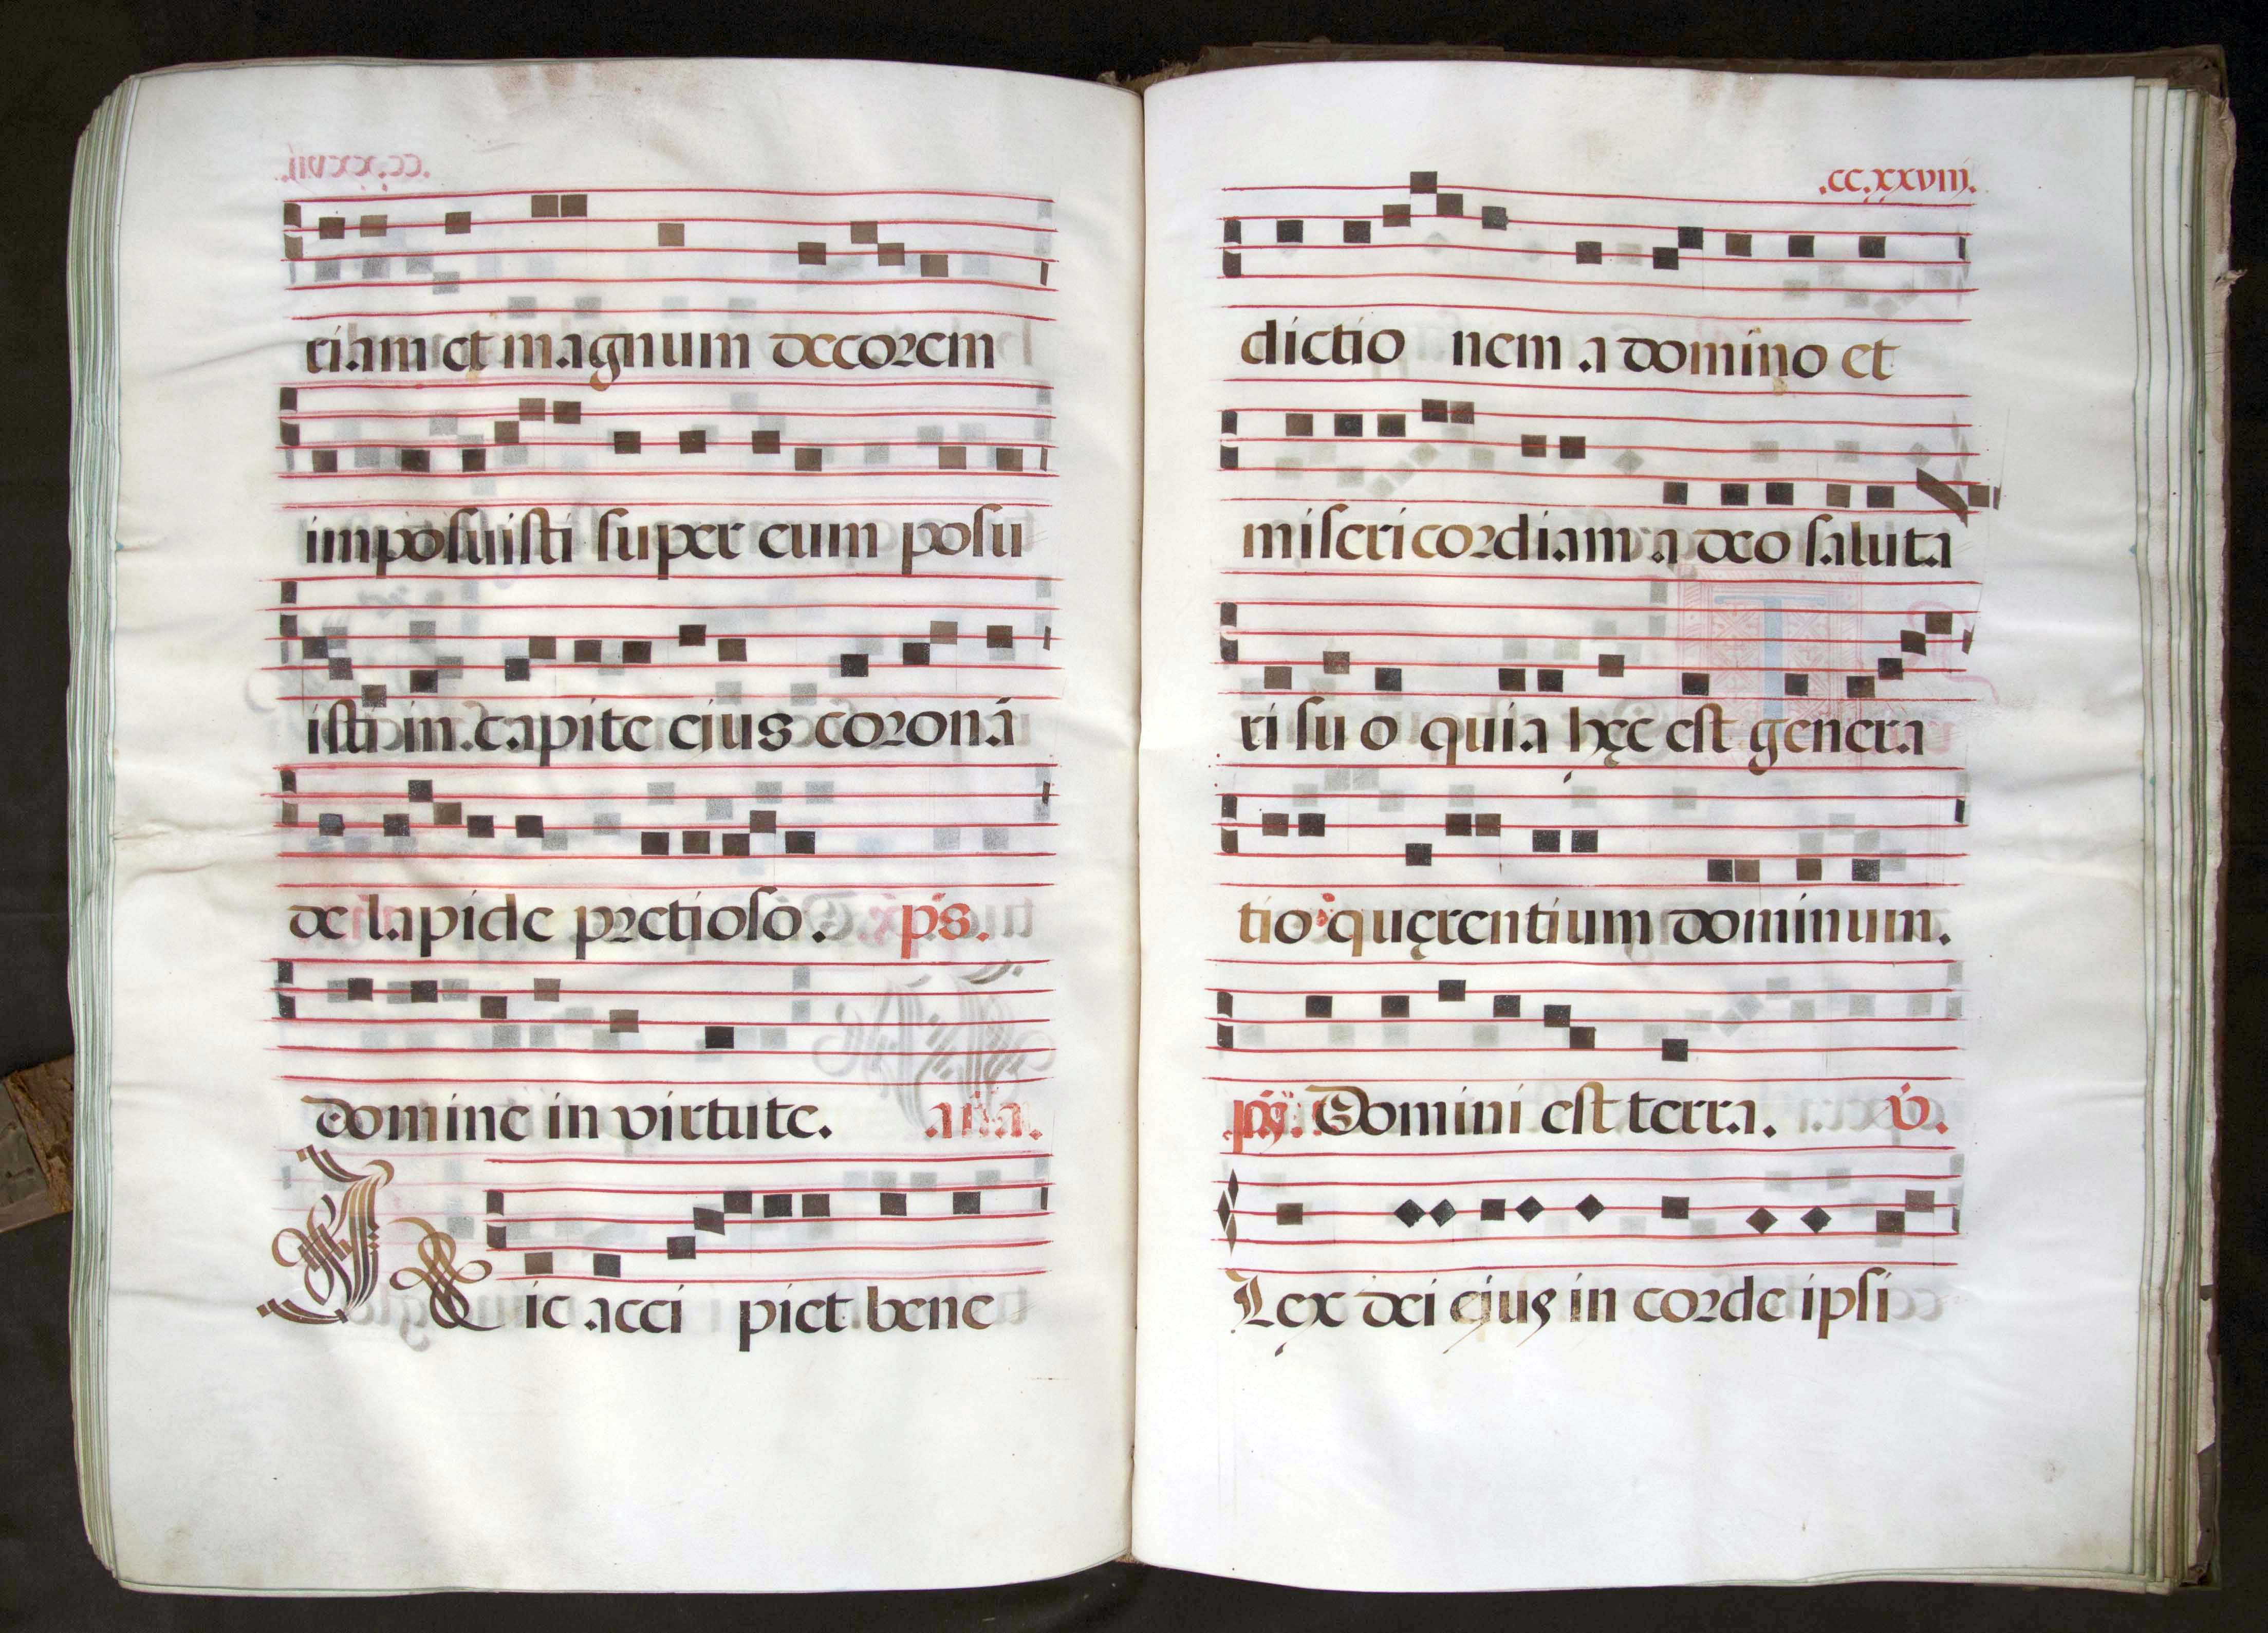 riam et magnum decorem
imposuisti super eum posu
isti in capite ejus coronā
de lapide pretioso. ps.
Domine in virtute. aña.
Hic acci piet bene
.cc.xxviij.
dictio nem a domino et
misericordiam a deo saluta
ri su o quia hęc est genera
tio quęrentium dominum.
ps. Domini est terra. v.
Lex dei ejus in corde ipsi